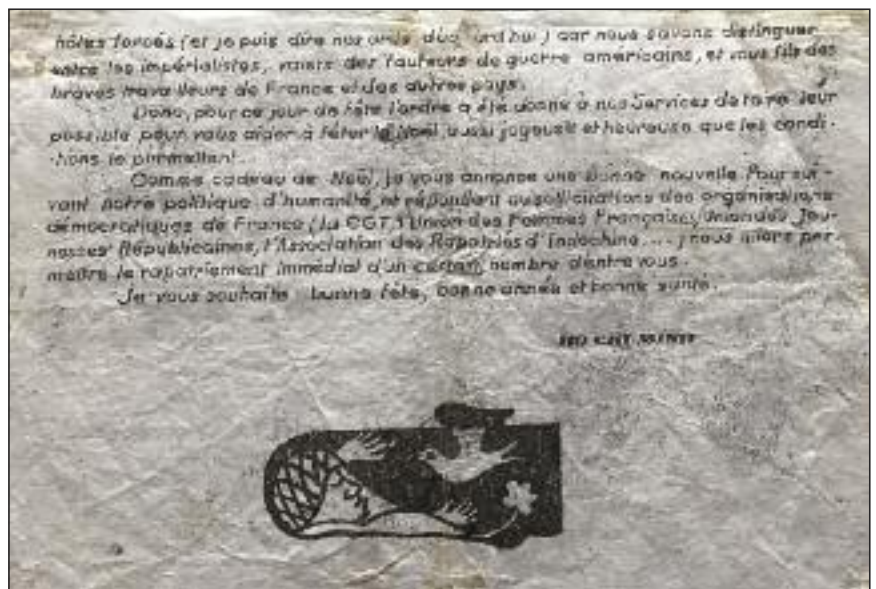 hôtes forcés (et je puis dire nos amis aujourd'hui) car nous savons distinguer
entre les impérialistes, valets des fauteurs de guerre américains, et vous fils des
braves travailleurs de France et des autres pays.
Donc, pour ce jour de fête l'ordre a été donné à nos Services de faire leur
possible pour vous aider à fêter le Noël aussi joyeuse et heureuse que les condi-
tions le permettent.
Comme cadeau de Noël, je vous annonce une bonne nouvelle Poursui-
vant notre politique d'humanité et répondant aux sollicitations des organisations
démocratiques de France (la CGT, l'Union des Femmes Françaises, Union des Jeu-
nesses Républicaines, l'Association des Rapatriés d'Indochine....) nous allons per-
mettre le rapatriement immédiat d'un certain nombre d'entre vous.
Je vous souhaite bonne fête, bonne année et bonne santé.
HO CHI MINH